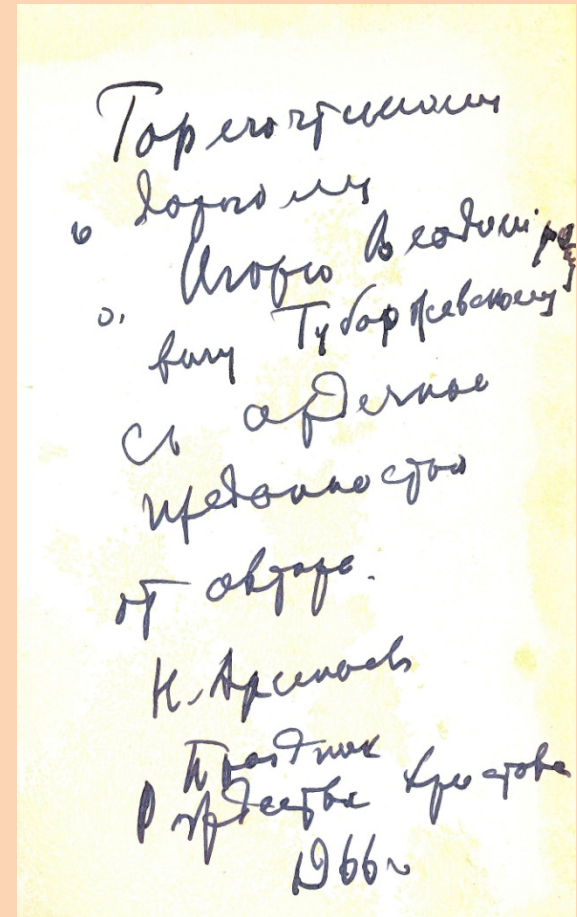 Горячочтимому
и дорогому
о. Игорю Владимiро
вичу Губаржевскому
съ сердечною
преданностью
от автора.
Н. Арсеньевъ
Праздник
Рождества Христова
1966 г